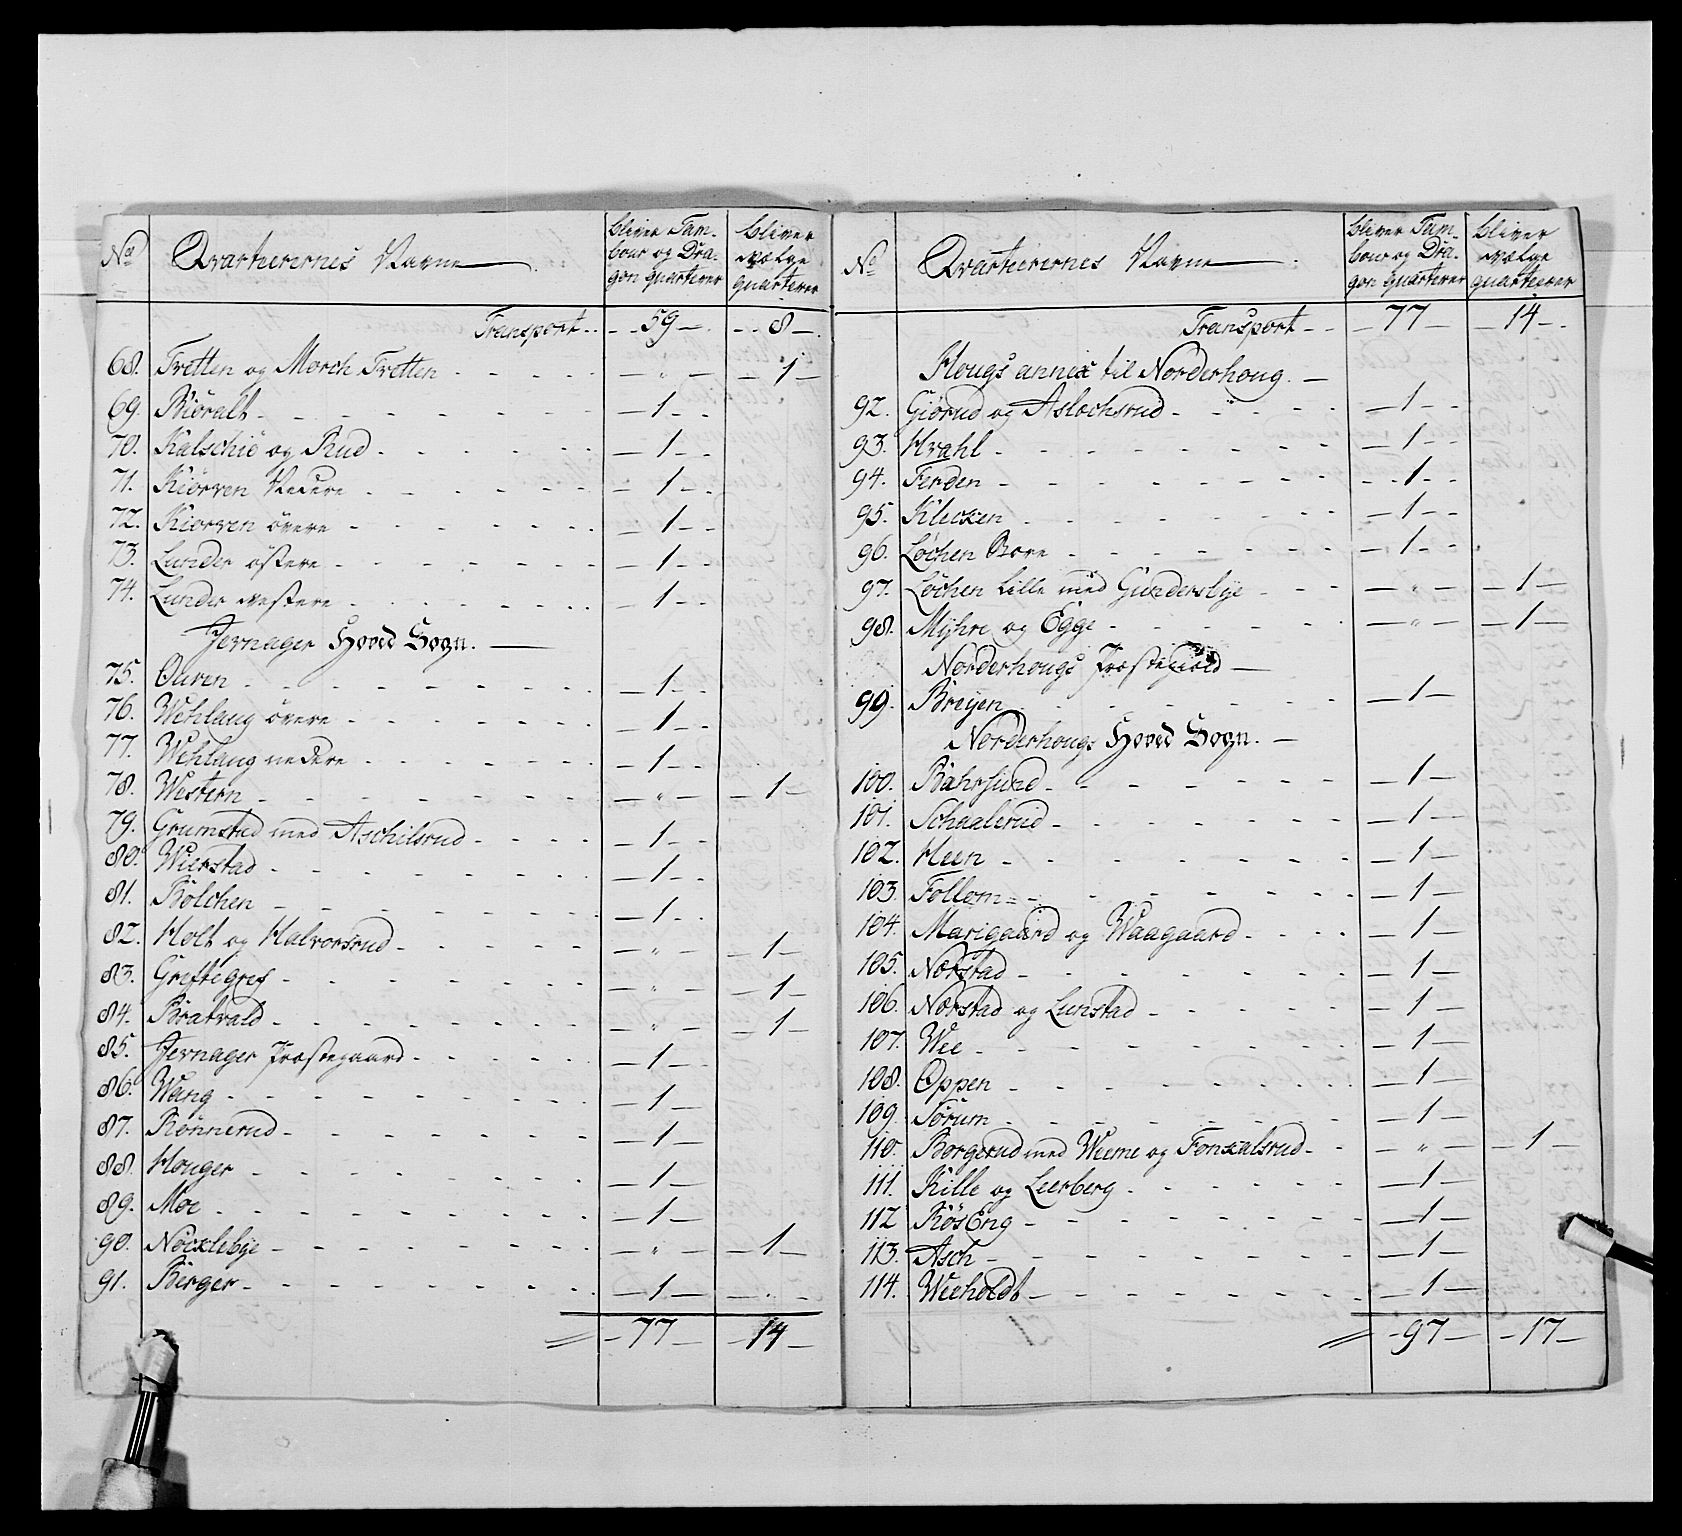 No
Qvarteerernes Navne
bliver Tam-
bour og Dra-
gon quarterer
bliver
væbge
quarterer
Transport - 59 - 8
68. Tretten og Morch Tretten - " - 1
69. Biöralt - 1
70. Kalschie og Rud - 1
71. Kiörven Nedere - 1
72. Kiörven övere - 1
73. Lunder östere - 1
74. Lunder vestere - 1
Jevnager Hoved Sogn.
75. Ouren - 1
76. Wehlang övere - 1
77. Wehlang nedere - 1
78. Western - " - 1
79. Grumstad med Aschilsrud - 1
80. Wierstad - 1
81. Bölchen - 1
82. Holt og Halvorsrud - " - 1
83. Greftegref - " - 1
84. Bratvald - " - 1
85. Jevnager Præstegaard - 1
86. Wang - 1
87. Rönnerud - 1
88. Houger - 1
89. Moe - 1
90. Nöcklebye - " - 1
91. Berger - 1
77 - 14
No
Qvarteerernes Navne
bliver Tam-
bour og Dra-
gon quarterer
bliver
væbge
quarteerer
Transport - 77 - 14
Hougs annex til Norderhoug.
92. Giörud og Aslochsrud - 1
93. Hvahl - 1
94. Ferden - 1
95. Klecken - 1
96. Löchen Store - 1
97. Löchen Lille med Gundersbye - " - 1
98. Mijhre og Egge - " - 1
Norderhougs Præstegield
99. Breyen - 1
Norderhougs Hoved Sogn.
100. Bahrsund - 1
101. Schaalerud - 1
102. Heen - 1
103. Follom - 1
104. Marigaard og Waagaard - 1
105. Nærstad - 1
106. Nærstad og Lunstad - 1
107. Wee - 1
108. Oppen - 1
109. Sörum - 1
110. Borgerud med Weeme og Fonkalsrud - " - 1
111. Kille og Leerberg - 1
112 Rös Eng - 1
113. Asch - 1
114. Weeholdt - 1
97 - 17